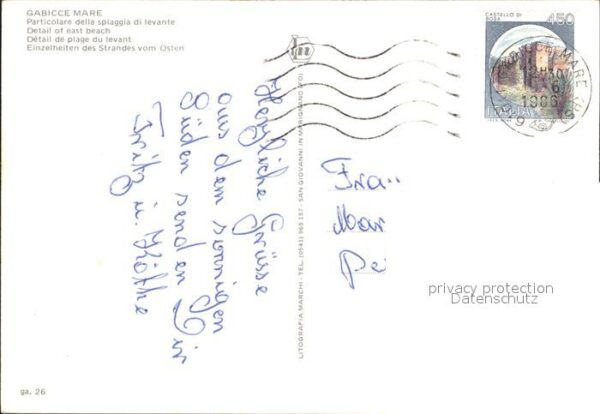 GABICCE MARE
Particolare della spiaggia di levante
Detail of east beach
Détail de plage du levant
Einzelheiten des Strandes vom Osten
CASTELLO DI
450
ITALIA
1986
Herzliche Grüsse
aus dem sonnigen
Süden senden Dir
Fritz u. Käthe
LITOGRAFIA MARCHI - TEL. (0541) 955 157 - SAN GIOVANNI IN MARIGNANO (FO)
Frau
Mar
Pe
privacy protection
Datenschutz
ga. 26